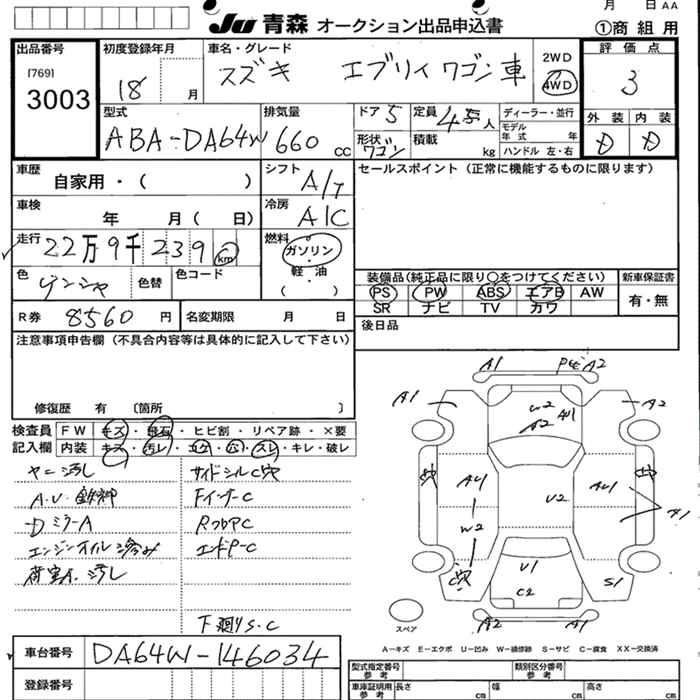 月 日 AA
JU 青森 オークション出品申込書
①商 組 用
出品番号
[769]
3003
初度登録年月
18 月
車名・グレード
スズキ エブリィ ワゴン 車
2WD
4WD
評 価 点
3
型式
ABA-DA64W
排気量
660 cc
ドア 5
形状 ワゴン
定員 4 人
積載 kg
ディーラー・並行
モデル年式 年
ハンドル 左・右
外 装
D
内 装
D
車歴
自家用・( )
シフト
A/T
セールスポイント(正常に機能するものに限ります)
車検
年 月( 日)
冷房
A/C
走行 22万9千239 km
燃料
ガソリン
軽・油
( )
色
色替
色コード
装備品(純正品に限り○をつけてください)
PS PW ABS エアB AW
SR ナビ TV カワ
新車保証書
有・無
R券 8560 円
名変期限 月 日
後日品
注意事項申告欄(不具合内容等は具体的に記入して下さい)
修復歴 有 〔箇所 〕
検査員
記入欄
FW キズ・飛石・ヒビ割・リペア跡・×要
内装 キズ・汚レ・コゲ・穴・スレ・キレ・破レ
ヤニ汚し
サイドシルC穴
A.V.欠品
FインナーC
DミラーA
RフロアC
エンジンオイル滲み
エンドP-C
荷室A.汚し
下廻りS.C
A1 A2
A1 A2
U2 AU1
A2
AU1 U2 AU1
W2 A1
穴 U1 S1
C2
A2 A1
スペア
A―キズ E―エクボ U―凹み W―補修跡 S―サビ C―腐食 XX―交換済
車台番号 DA64W-146034
登録番号
型式指定番号 参考
類別区分番号 参考
車庫証明用 参考
長さ cm
幅 cm
高さ cm